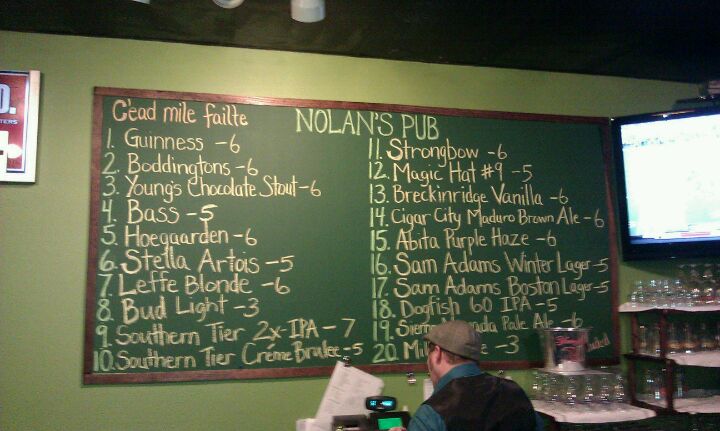 C'ead mile failte
NOLAN'S PUB
1. Guinness - 6
2. Boddingtons - 6
3. Young's Chocolate Stout - 6
4. Bass - 5
5. Hoegaarden - 6
6. Stella Artois - 5
7. Leffe Blonde - 6
8. Bud Light - 3
9. Southern Tier 2x-IPA - 7
10. Southern Tier Créme Brulee - 5
11. Strongbow - 6
12. Magic Hat #9 - 5
13. Breckinridge Vanilla - 6
14. Cigar City Maduro Brown Ale - 6
15. Abita Purple Haze - 6
16. Sam Adams Winter Lager - 5
17. Sam Adams Boston Lager - 5
18. Dogfish 60 IPA - 5
19. Pale Ale - 6
20. - 3